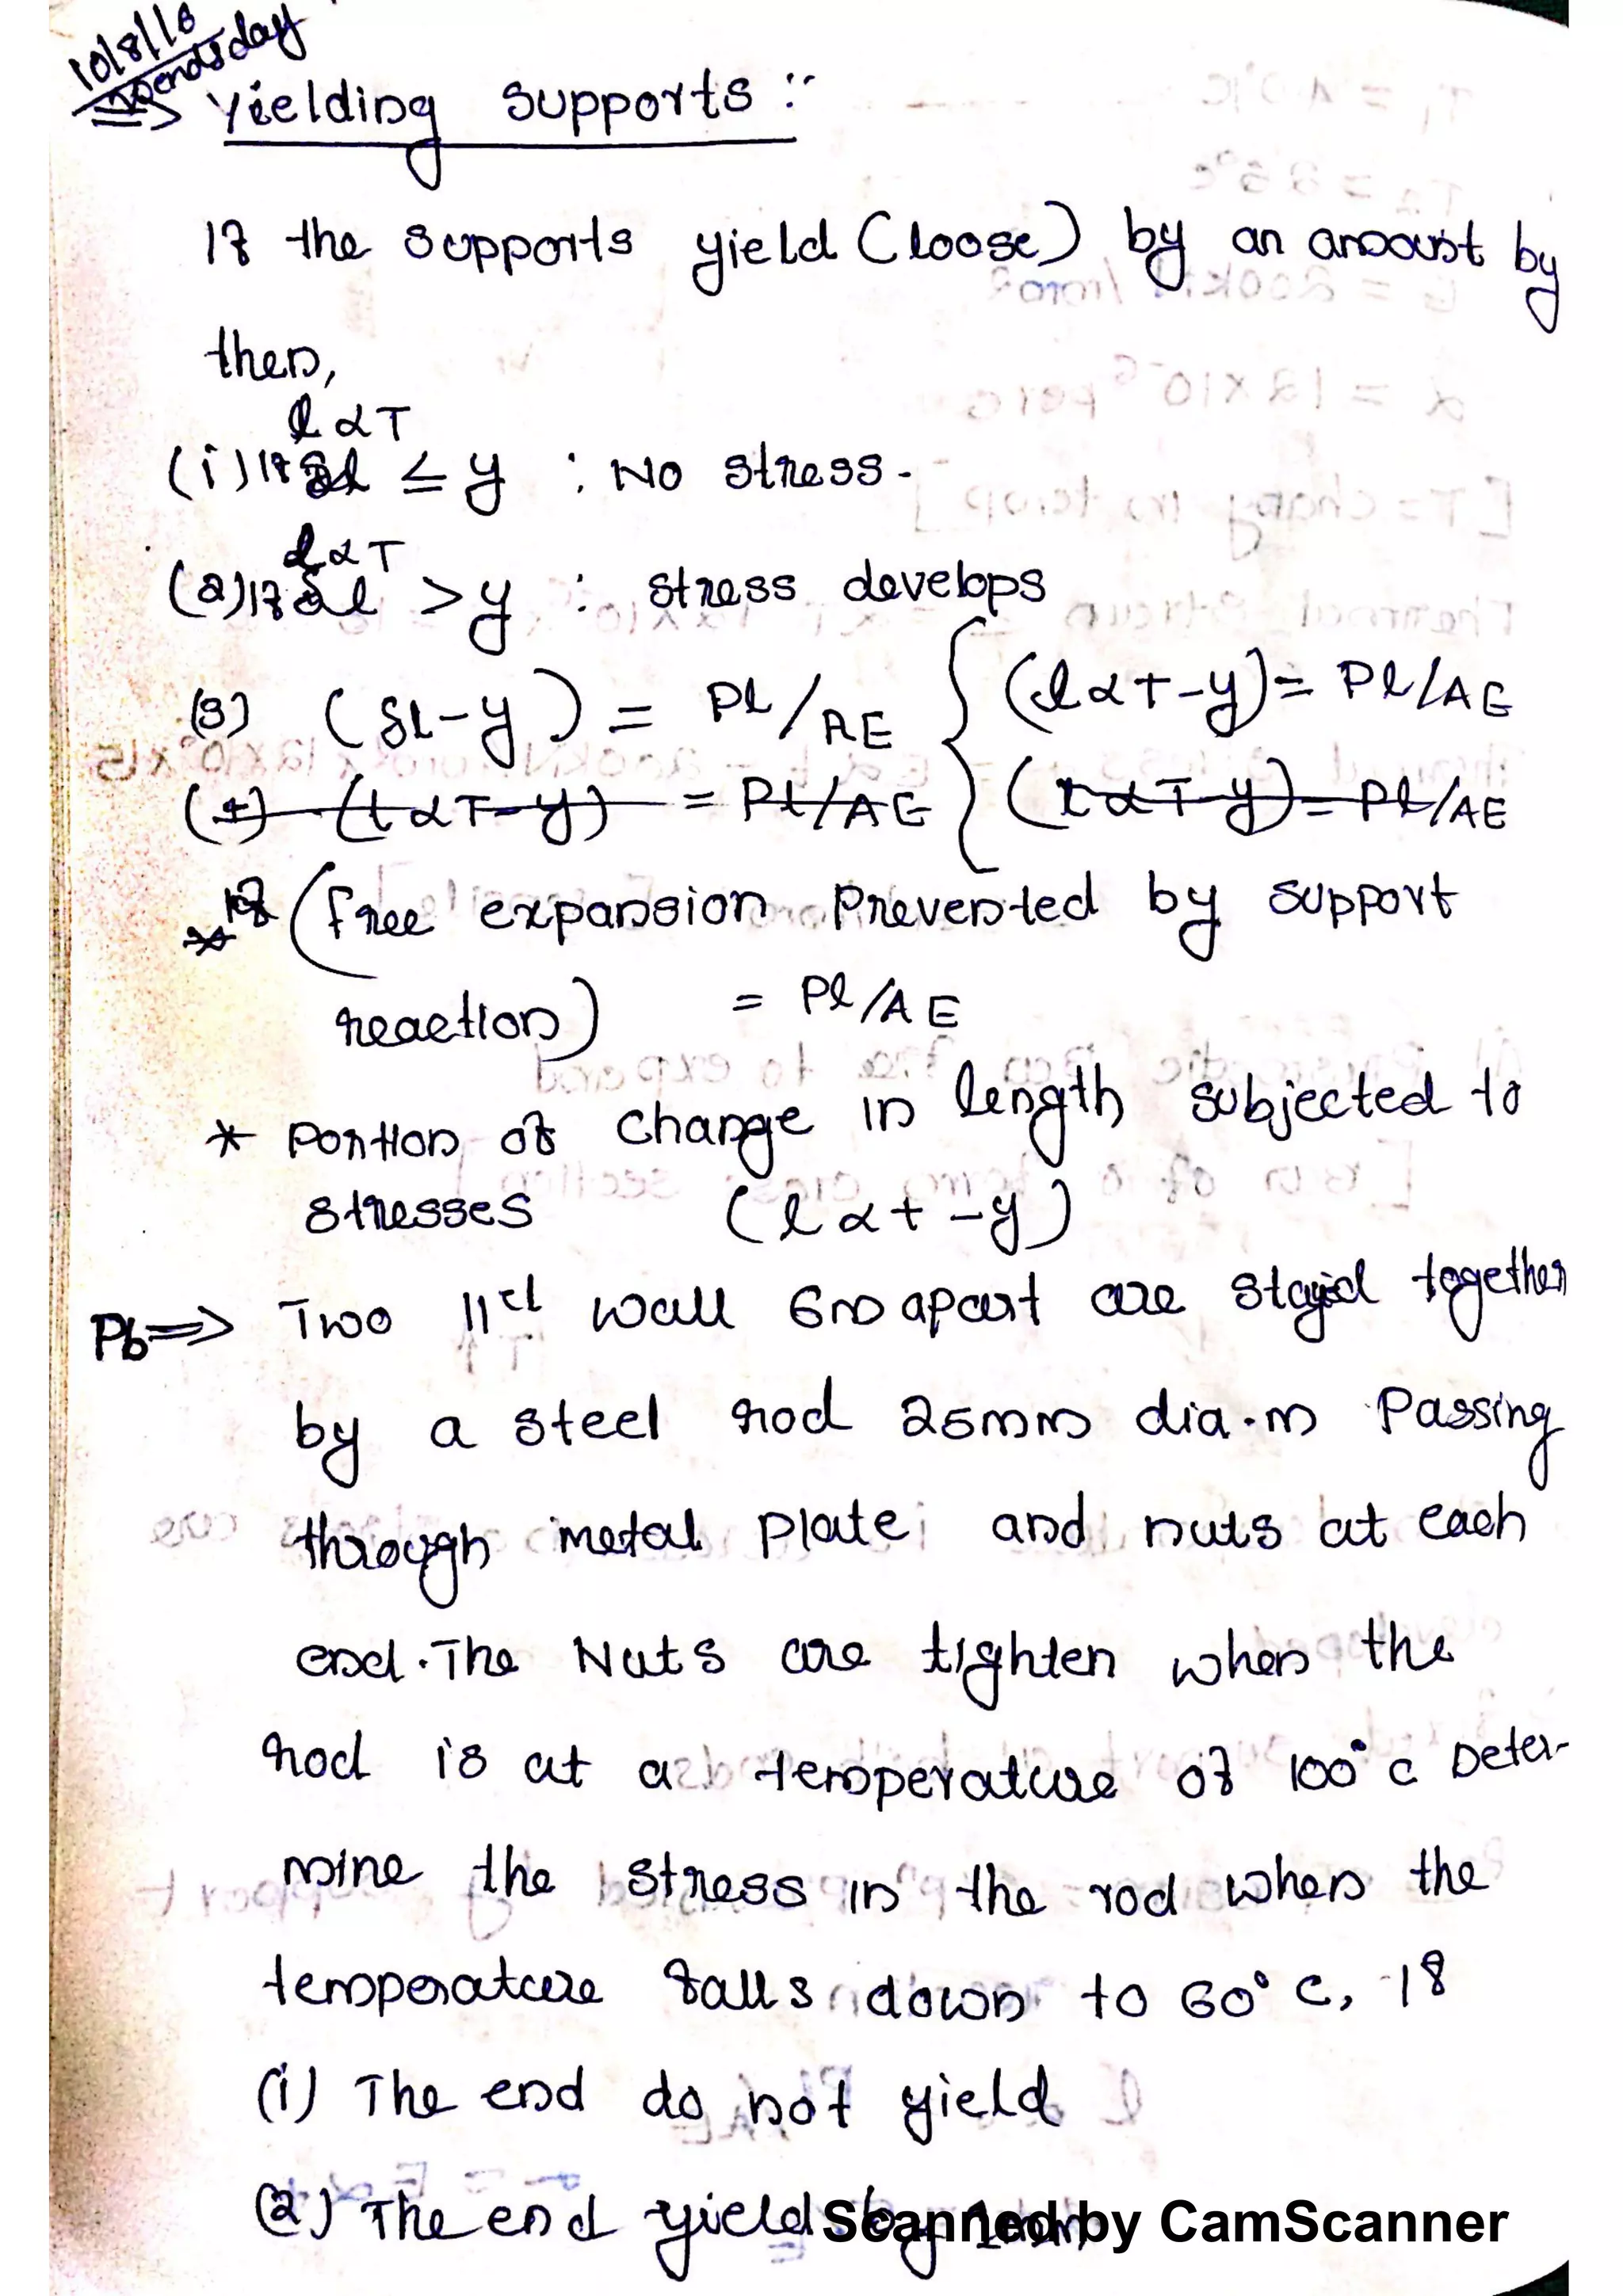 10/8/16
Wendsday
=> Yielding supports :-
If the supports yield (loose) by an amount by
then,
lαT
(i) If δl ≤ y : No stress.
lαT
(2) If δl > y : stress develops
(3) (δl-y) = Pl/AE { (lαT-y) = Pl/AE
(4) (lαT-y) = Pl/AE (lαT-y) = Pl/AE
* If (free expansion Prevented by support
reaction) = Pl/AE
* Portion of change in length subjected to
stresses (lαt-y)
Pb=> Two 11el wall 6m apart are stayed together
by a steel rod 25mm dia.m Passing
through metal plate and nuts at each
end. The Nuts are tighten when the
rod is at a temperature of 100°c Deter-
mine the stress in the rod when the
temperature falls down to 60°c, if
(i) The end do not yield
(2) The end yield by 1mm
Scanned by CamScanner